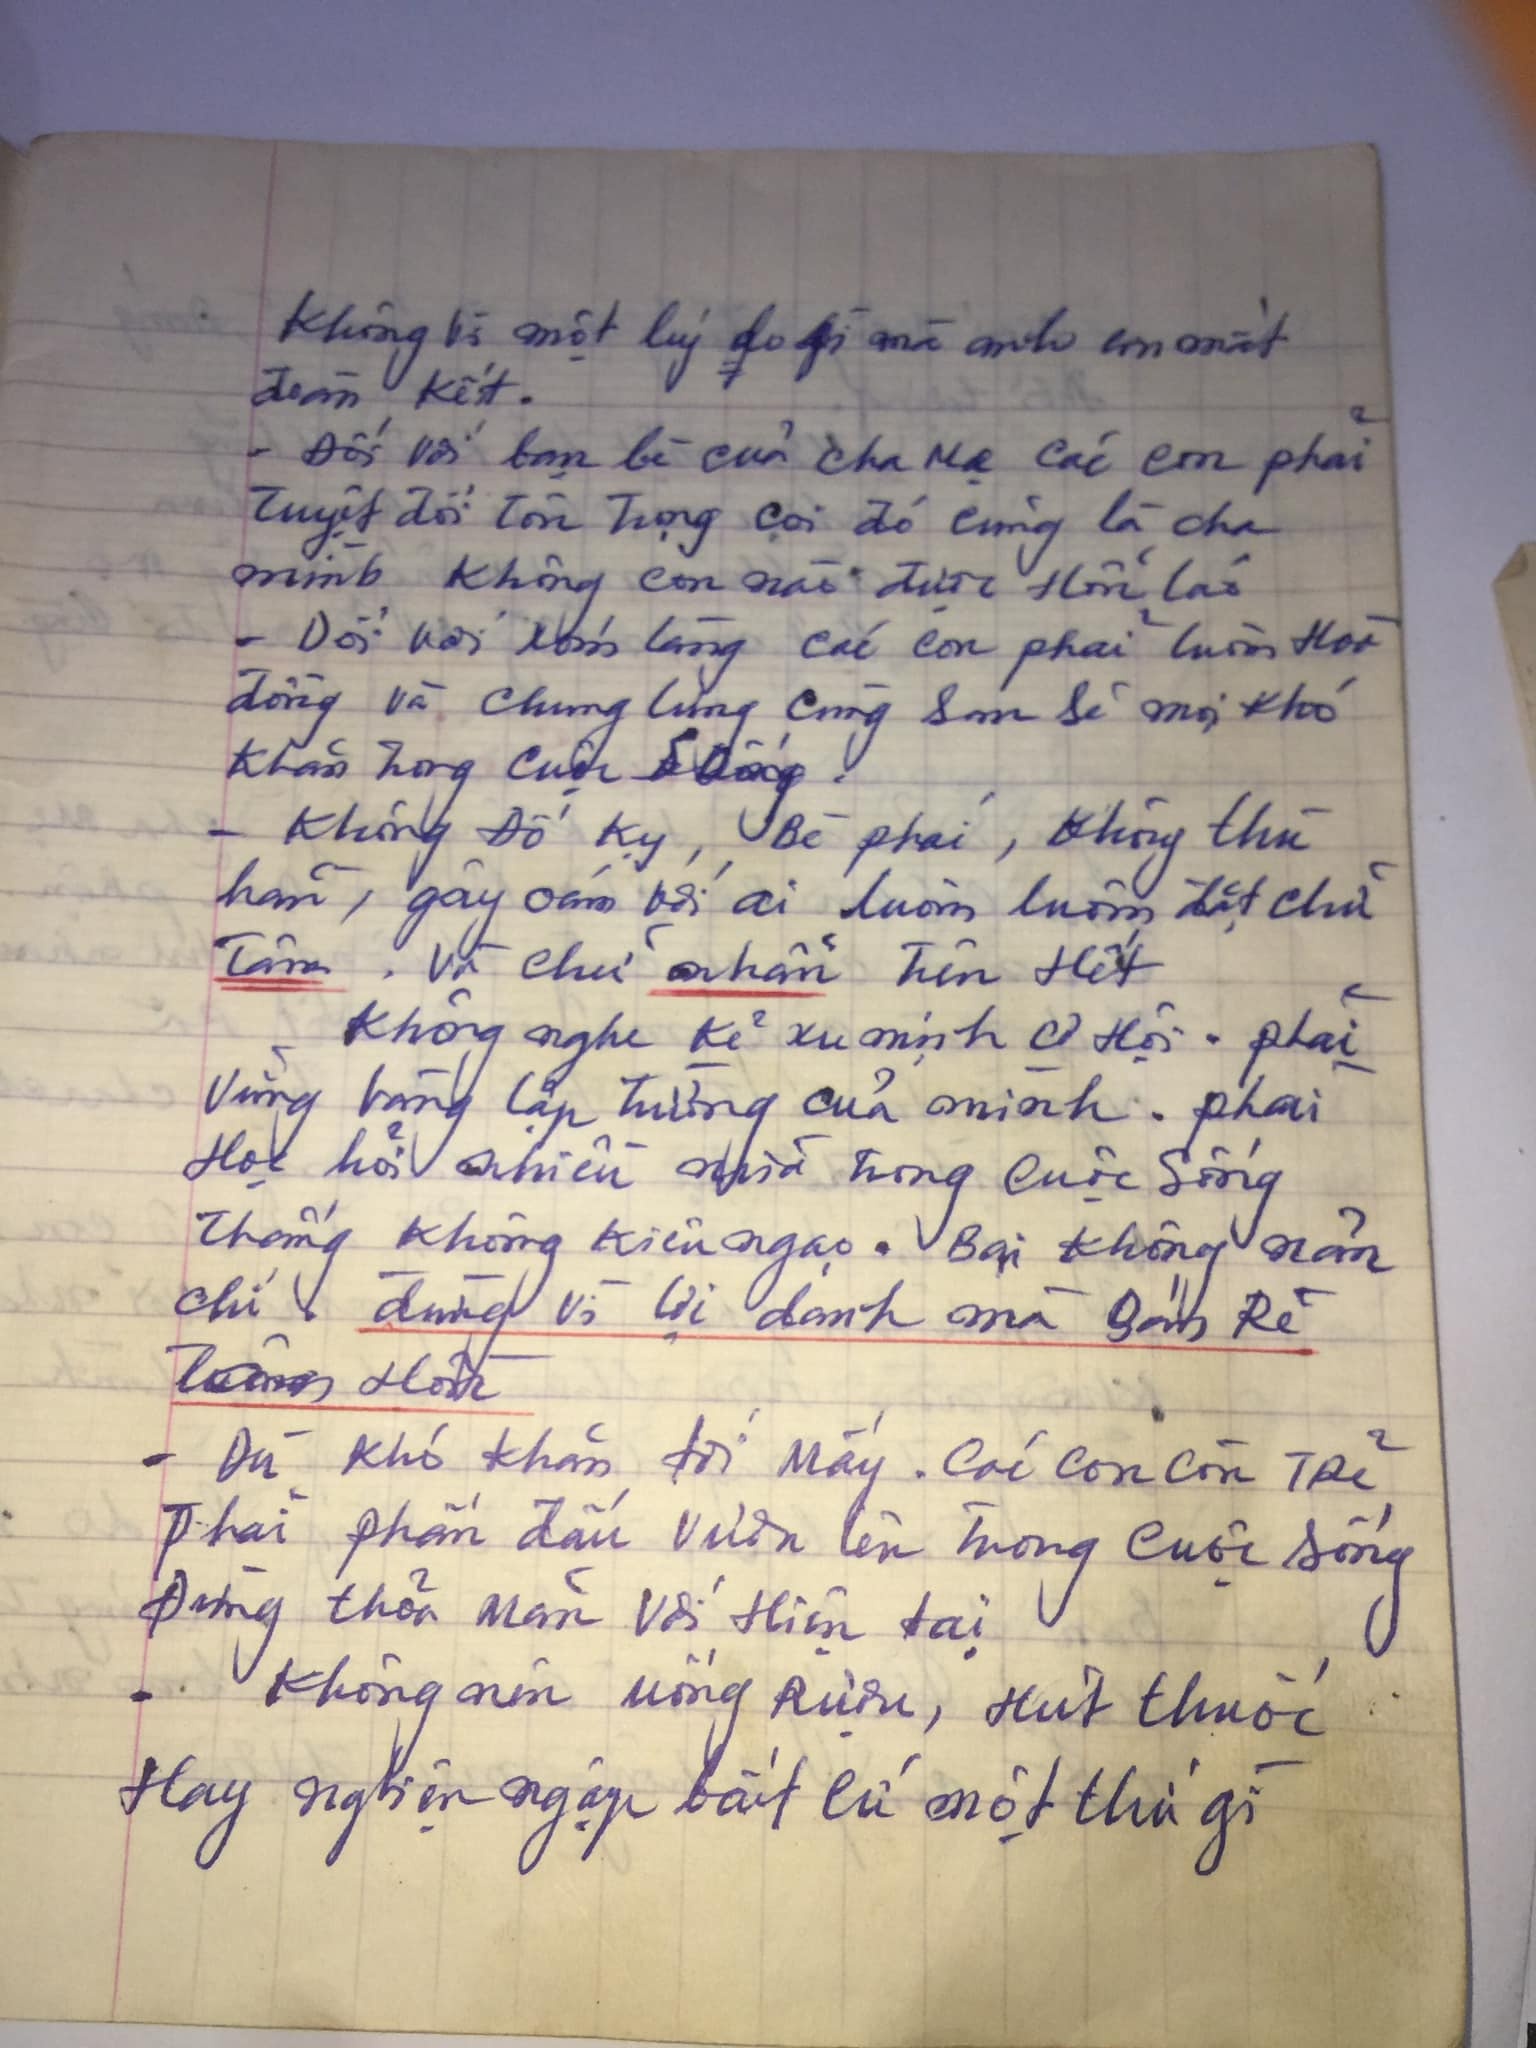 Không vì một lý do gì mà anh em mất
đoàn kết.
- Đối với bạn bè của cha Mẹ các con phải
Tuyệt đối tôn trọng coi đó cũng là cha
mình không con nào được Hỗn láo
- Đối với xóm làng các con phải luôn Hoà
đồng và chung lưng cùng san sẻ mọi khó
khăn trong cuộc sống.
- Không Đố Kỵ, Bè phái, không thù
hằn, gây oán với ai luôn luôn đặt chữ
Tâm. Và chữ nhẫn trên Hết
Không nghe kẻ xu nịnh cơ Hội. phải
Vững vàng lập trường của mình. phải
Học hỏi nhiều nữa trong cuộc sống
Thắng không kiêu ngạo. Bại không nản
chí. đừng vì lợi danh mà Bán Rẻ
Lương Hồn
- Dù khó khăn tới Mấy. Các con còn TRẻ
Phải phấn đấu vươn lên trong cuộc sống
Đừng thỏa Mãn với Hiện tại
- Không nên uống Rượu, Hút thuốc
Hay nghiện ngập bất cứ một thứ gì